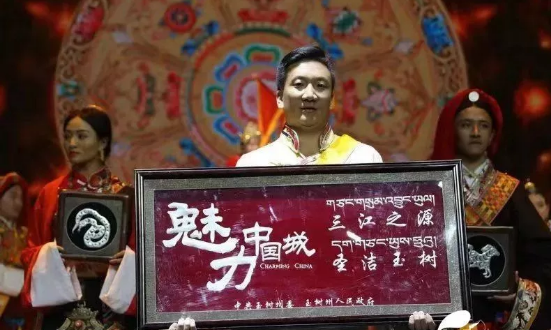 魅力中国城
CHARMING CHINA
གཙང་གསུམ་འབྱུང་ཡུལ།
三江之源
དག་གཙང་ཡུལ་ཤུལ།
圣洁玉树
中共玉树州委 玉树州人民政府